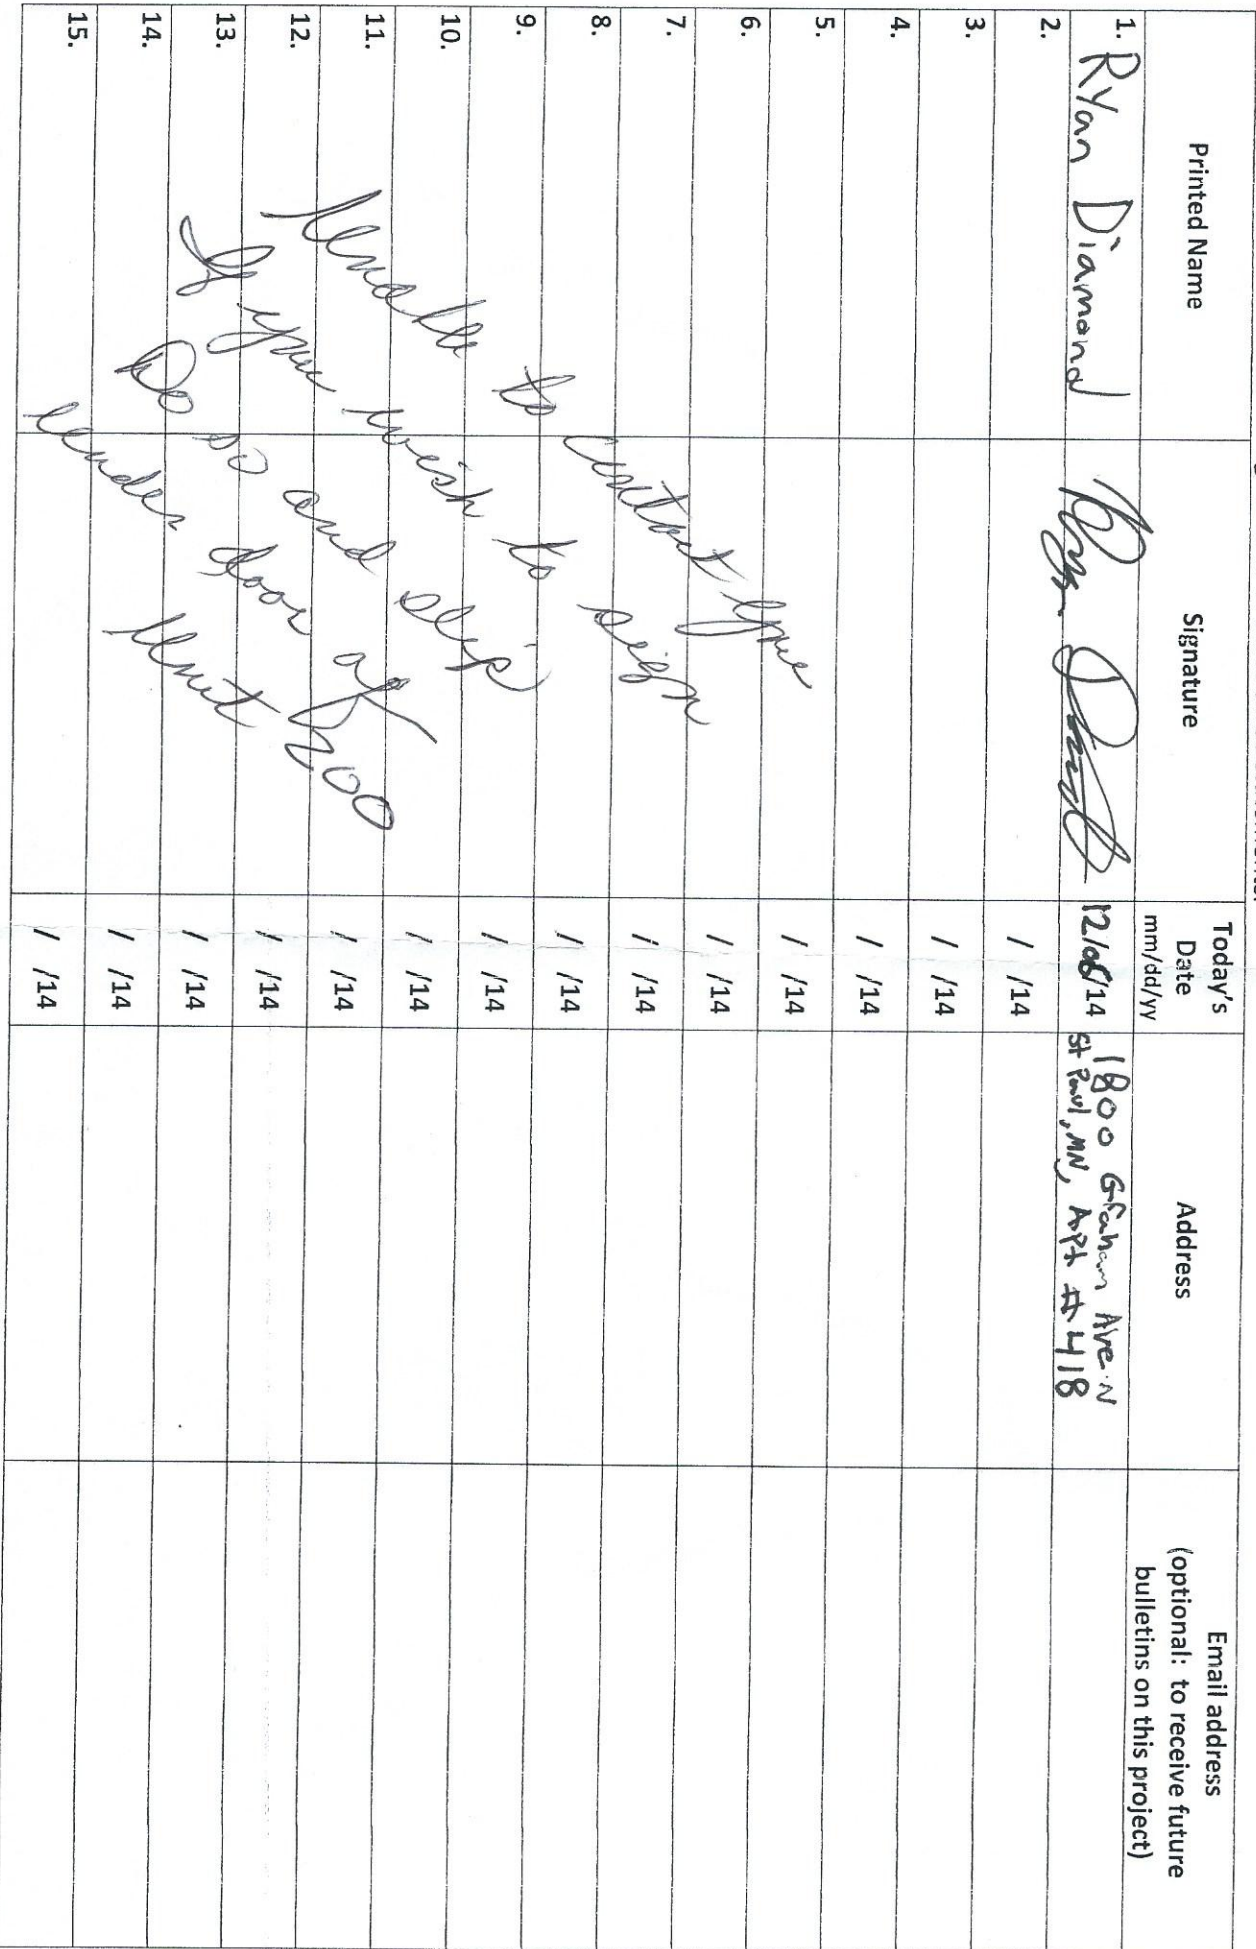 Printed Name
Signature
Today's
Date
mm/dd/yy
Address
Email address
(optional: to receive future
bulletins on this project)
1. Ryan Diamond
12/08/14
1800 Graham Ave N
St Paul, MN, Apt #418
2. / /14
3. / /14
4. / /14
5. / /14
6. / /14
7. / /14
8. / /14
9. / /14
10. / /14
11. / /14
12. / /14
13. / /14
14. / /14
15. / /14
Unable to contact you
If you wish to sign
Do so and slip
under door at
Unit 200